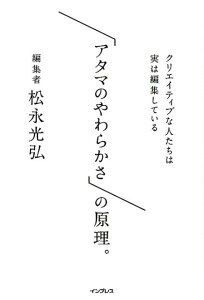 クリエイティブな人たちは
実は編集している
「アタマのやわらかさ」
の原理。
編集者 松永光弘
インプレス